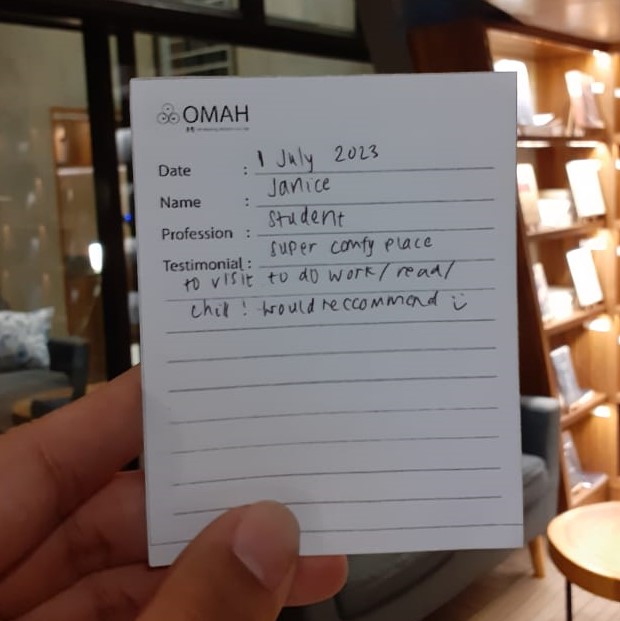 OMAH
Date : 1 July 2023
Name : Janice
Profession : Student
Testimonial : super comfy place
to visit to do work/read/
chill! Would reccommend :)